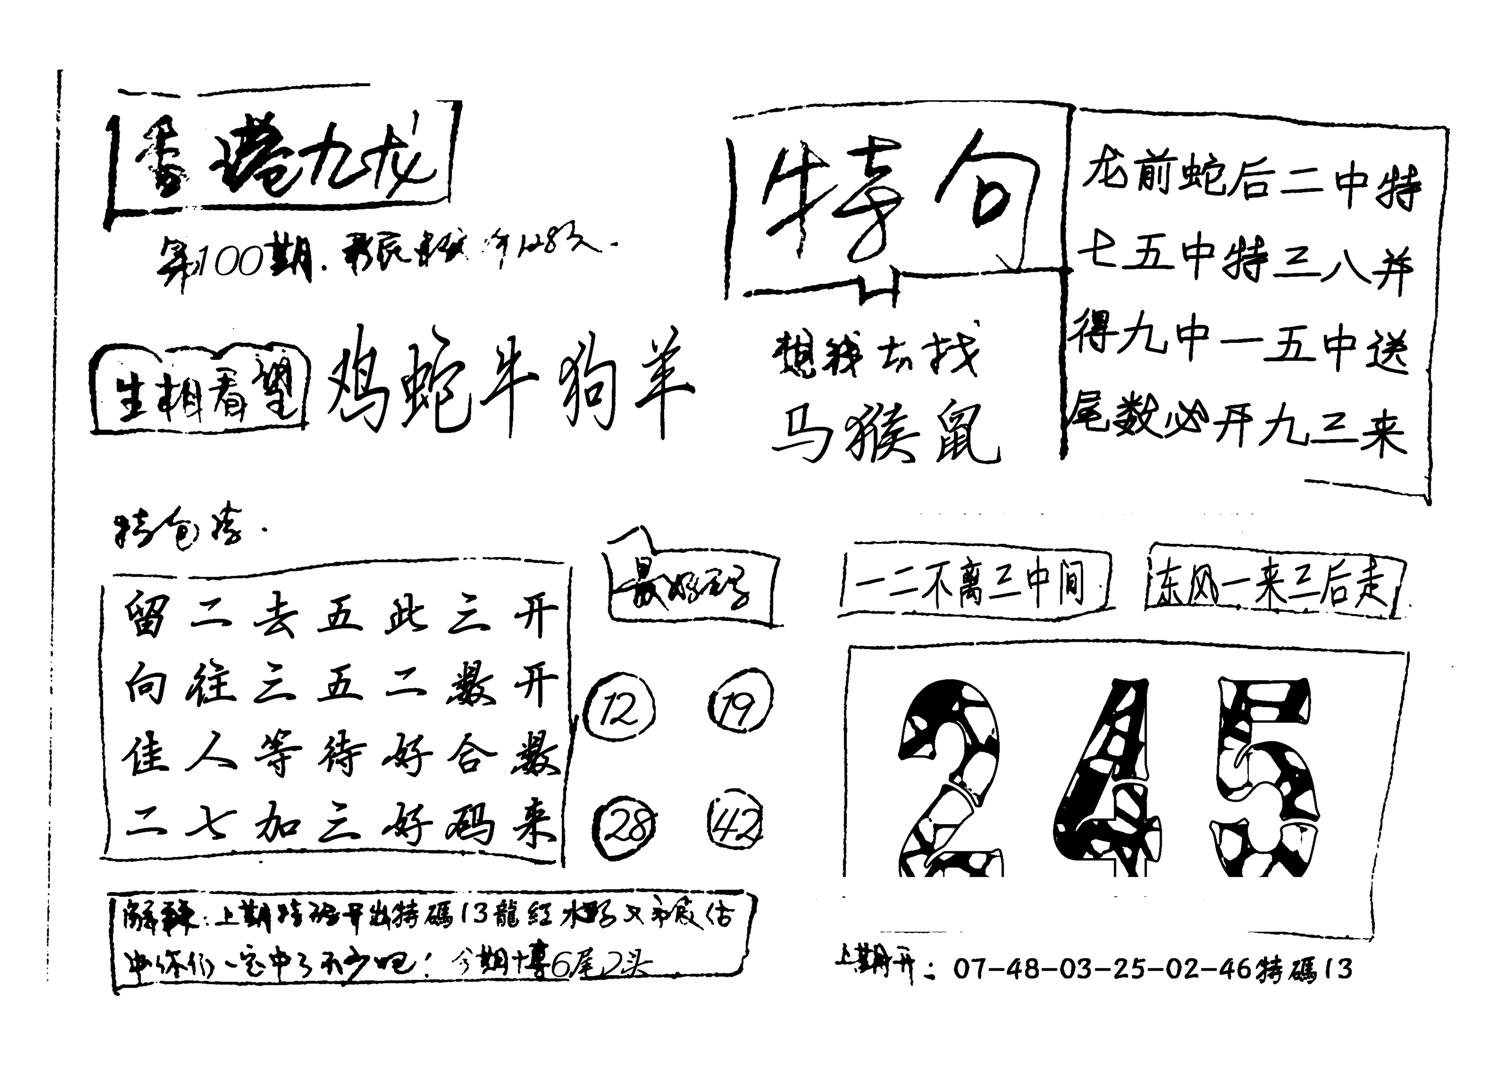 香港九龙
第100期.
生相看望
鸡蛇牛狗羊
特句
想钱去找
马猴鼠
龙前蛇后二中特
七五中特三八并
得九中一五中送
尾数必开九三来
特包
留二去五此三开
向往三五二数开
佳人等待好合数
二七加三好码来
最好码
12 19
28 42
一二不离三中间
东风一来三后走
245
解释:上期特码开出特碼13龍红水
你们一定中了不少吧! 今期十尊6尾2头
上期开: 07-48-03-25-02-46特碼13